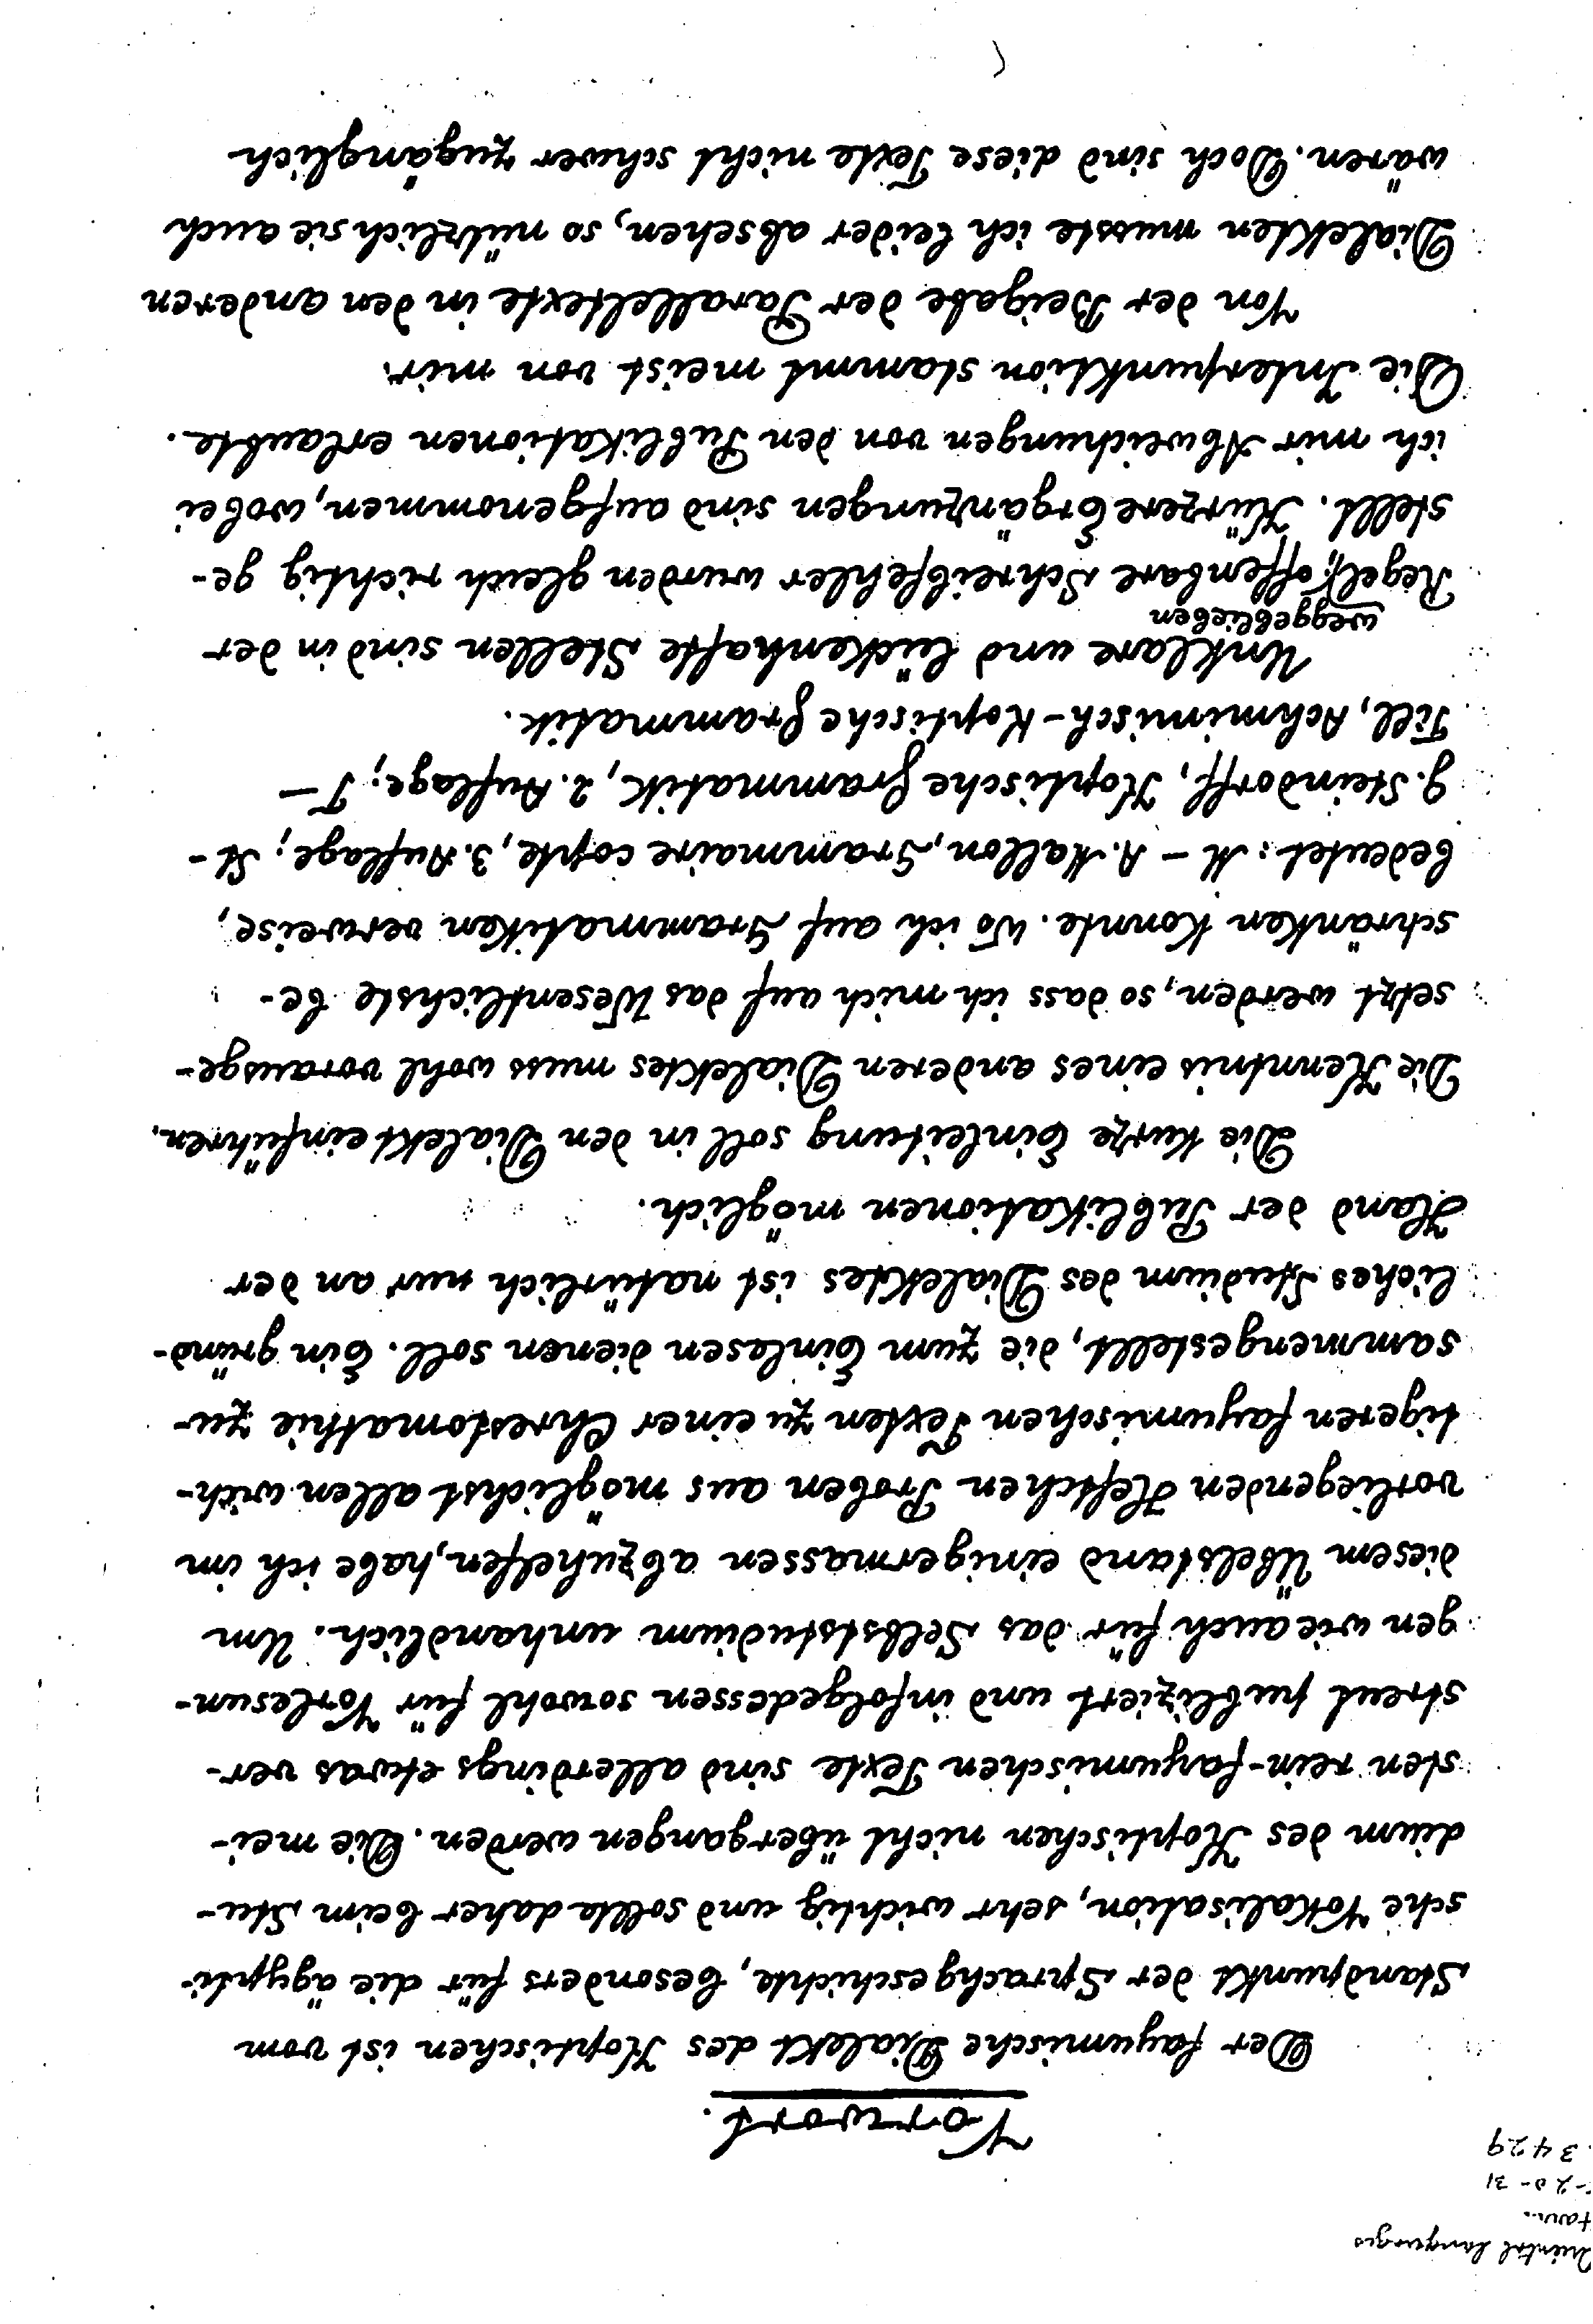 Oriental Languages
-20-31
3429
Vorwort.
Der fayumische Dialekt des Koptischen ist vom
Standpunkt der Sprachgeschichte, besonders für die ägypti-
sche Vokalisation, sehr wichtig und sollte daher beim Stu-
dium des Koptischen nicht übergangen werden. Die mei-
sten rein-fayumischen Texte sind allerdings etwas ver-
streut publiziert und infolgedessen sowohl für Vorlesun-
gen wie auch für das Selbststudium unhandlich. Um
diesem Übelstand einigermassen abzuhelfen, habe ich im
vorliegenden Heftchen Proben aus möglichst allen wich-
tigeren fayumischen Texten zu einer Chrestomathie zu-
sammengestellt, die zum Einlesen dienen soll. Ein gründ-
liches Studium des Dialektes ist natürlich nur an der
Hand der Publikationen möglich.
Die kurze Einleitung soll in den Dialekt einführen.
Die Kenntnis eines anderen Dialektes muss wohl vorausge-
setzt werden, so dass ich mich auf das Wesentlichste be-
schränken konnte. Wo ich auf Grammatiken verweise,
bedeutet: M - A. Mallon, Grammaire copte, 3. Auflage; St -
G. Steindorff, Koptische Grammatik, 2. Auflage; T -
Till, Achmimisch-Koptische Grammatik.
Unklare und lückenhafte Stellen sind in der
weggeblieben
Regel; offenbare Schreibfehler wurden gleich richtig ge-
stellt. Kürzere Ergänzungen sind aufgenommen, wobei
ich mir Abweichungen von den Publikationen erlaubte.
Die Interpunktion stammt meist von mir.
Von der Beigabe der Paralleltexte in den anderen
Dialekten musste ich leider absehen, so nützlich sie auch
wären. Doch sind diese Texte nicht schwer zugänglich